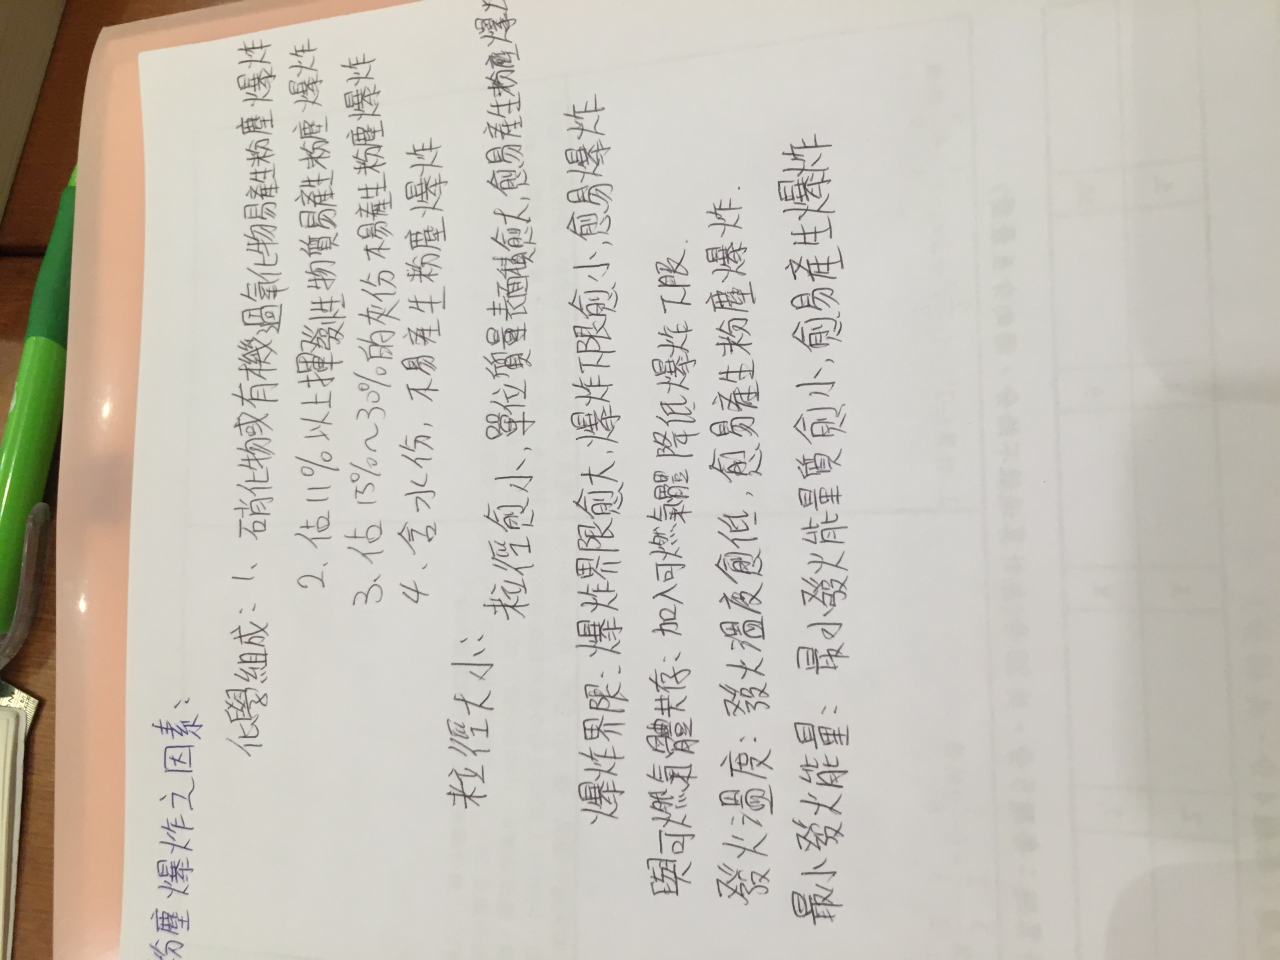 粉塵爆炸之因素:
化學組成: 1、硝化物或有機過氧化物易產生粉塵爆炸
2、佔11%以上揮發性物質易產生粉塵爆炸
3、佔15%~30%的灰份不易產生粉塵爆炸
4、含水份,不易產生粉塵爆炸
粒徑大小:
粒徑愈小,單位質量表面積愈大,愈易產生粉塵爆炸
爆炸界限: 爆炸界限愈大,爆炸下限愈小,愈易爆炸
與可燃氣體共存: 加入可燃氣體降低爆炸下限.
發火溫度: 發火溫度愈低,愈易產生粉塵爆炸.
最小發火能量: 最小發火能量質愈小,愈易產生爆炸